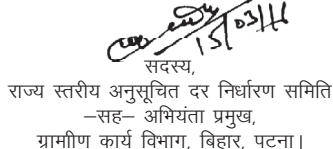 15/03/16
सदस्य,
राज्य स्तरीय अनुसूचित दर निर्धारण समिति
–सह– अभियंता प्रमुख,
ग्रामीण कार्य विभाग, बिहार, पटना।